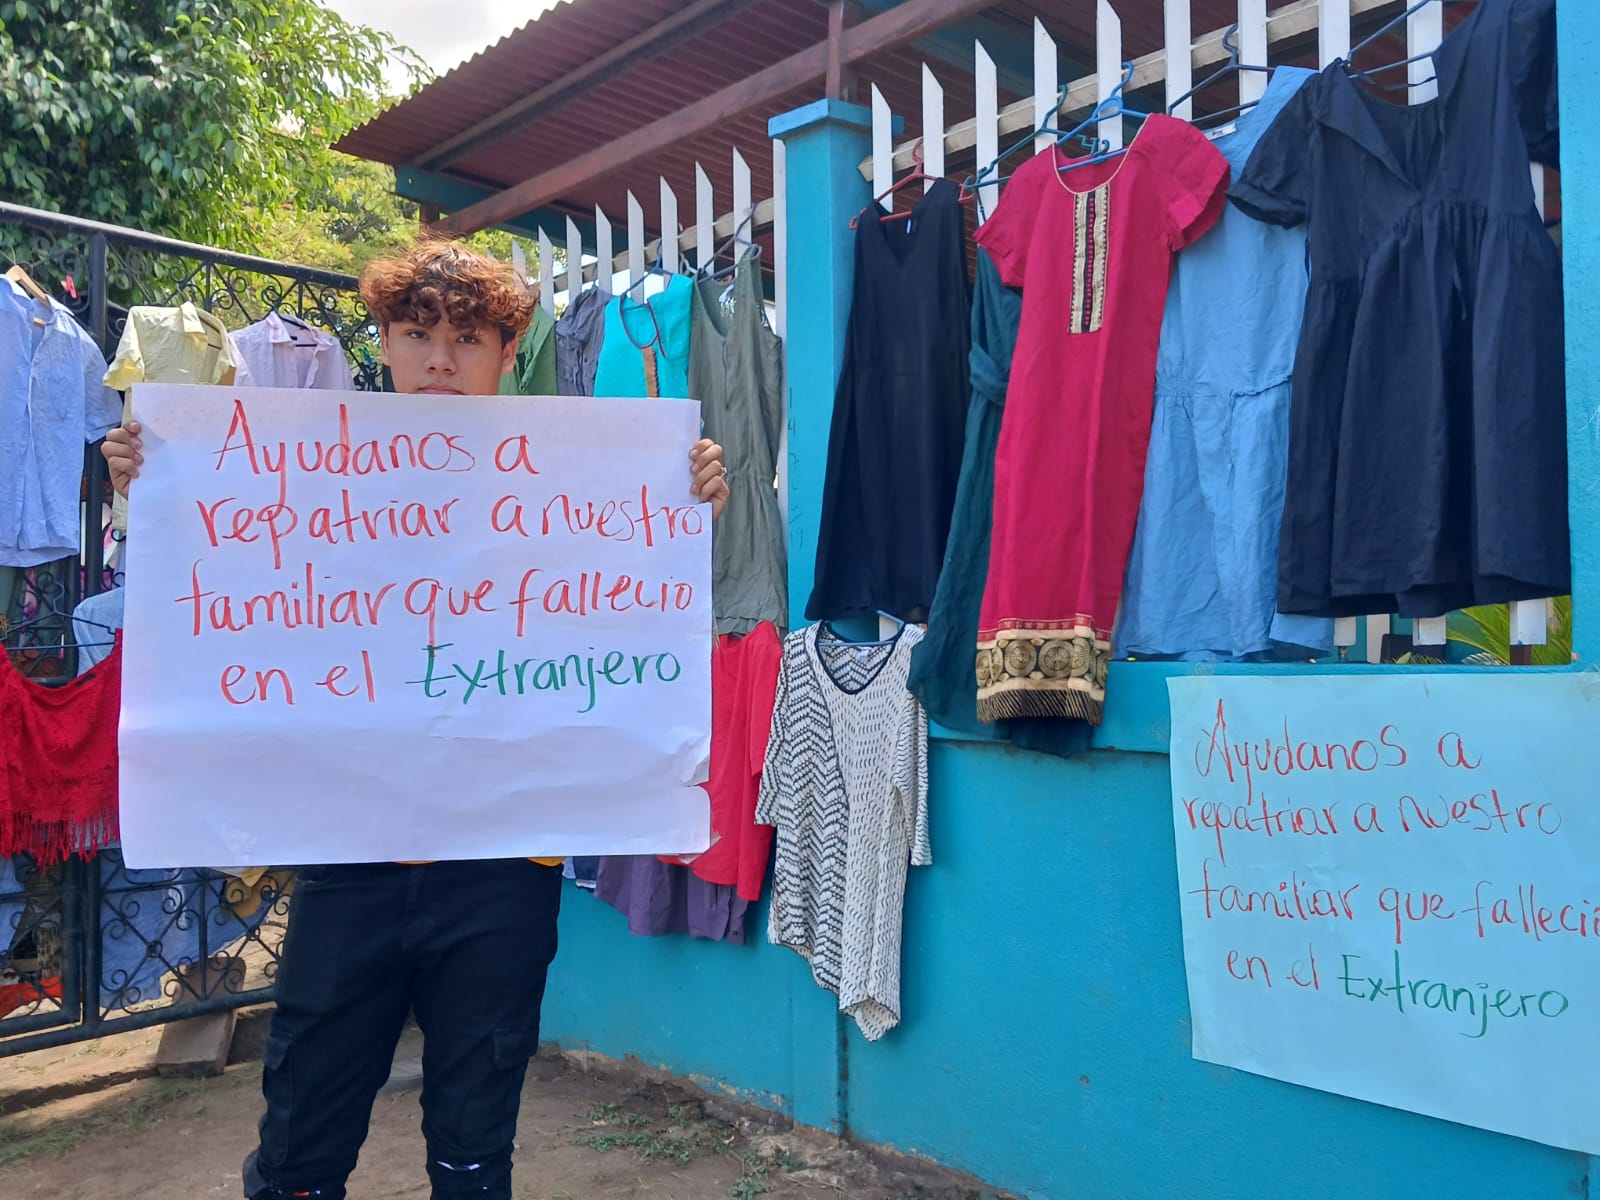 Ayudanos a
repatriar a nuestro
familiar que fallecio
en el Extranjero
Ayudanos a
repatriar a nuestro
familiar que falleció
en el Extranjero